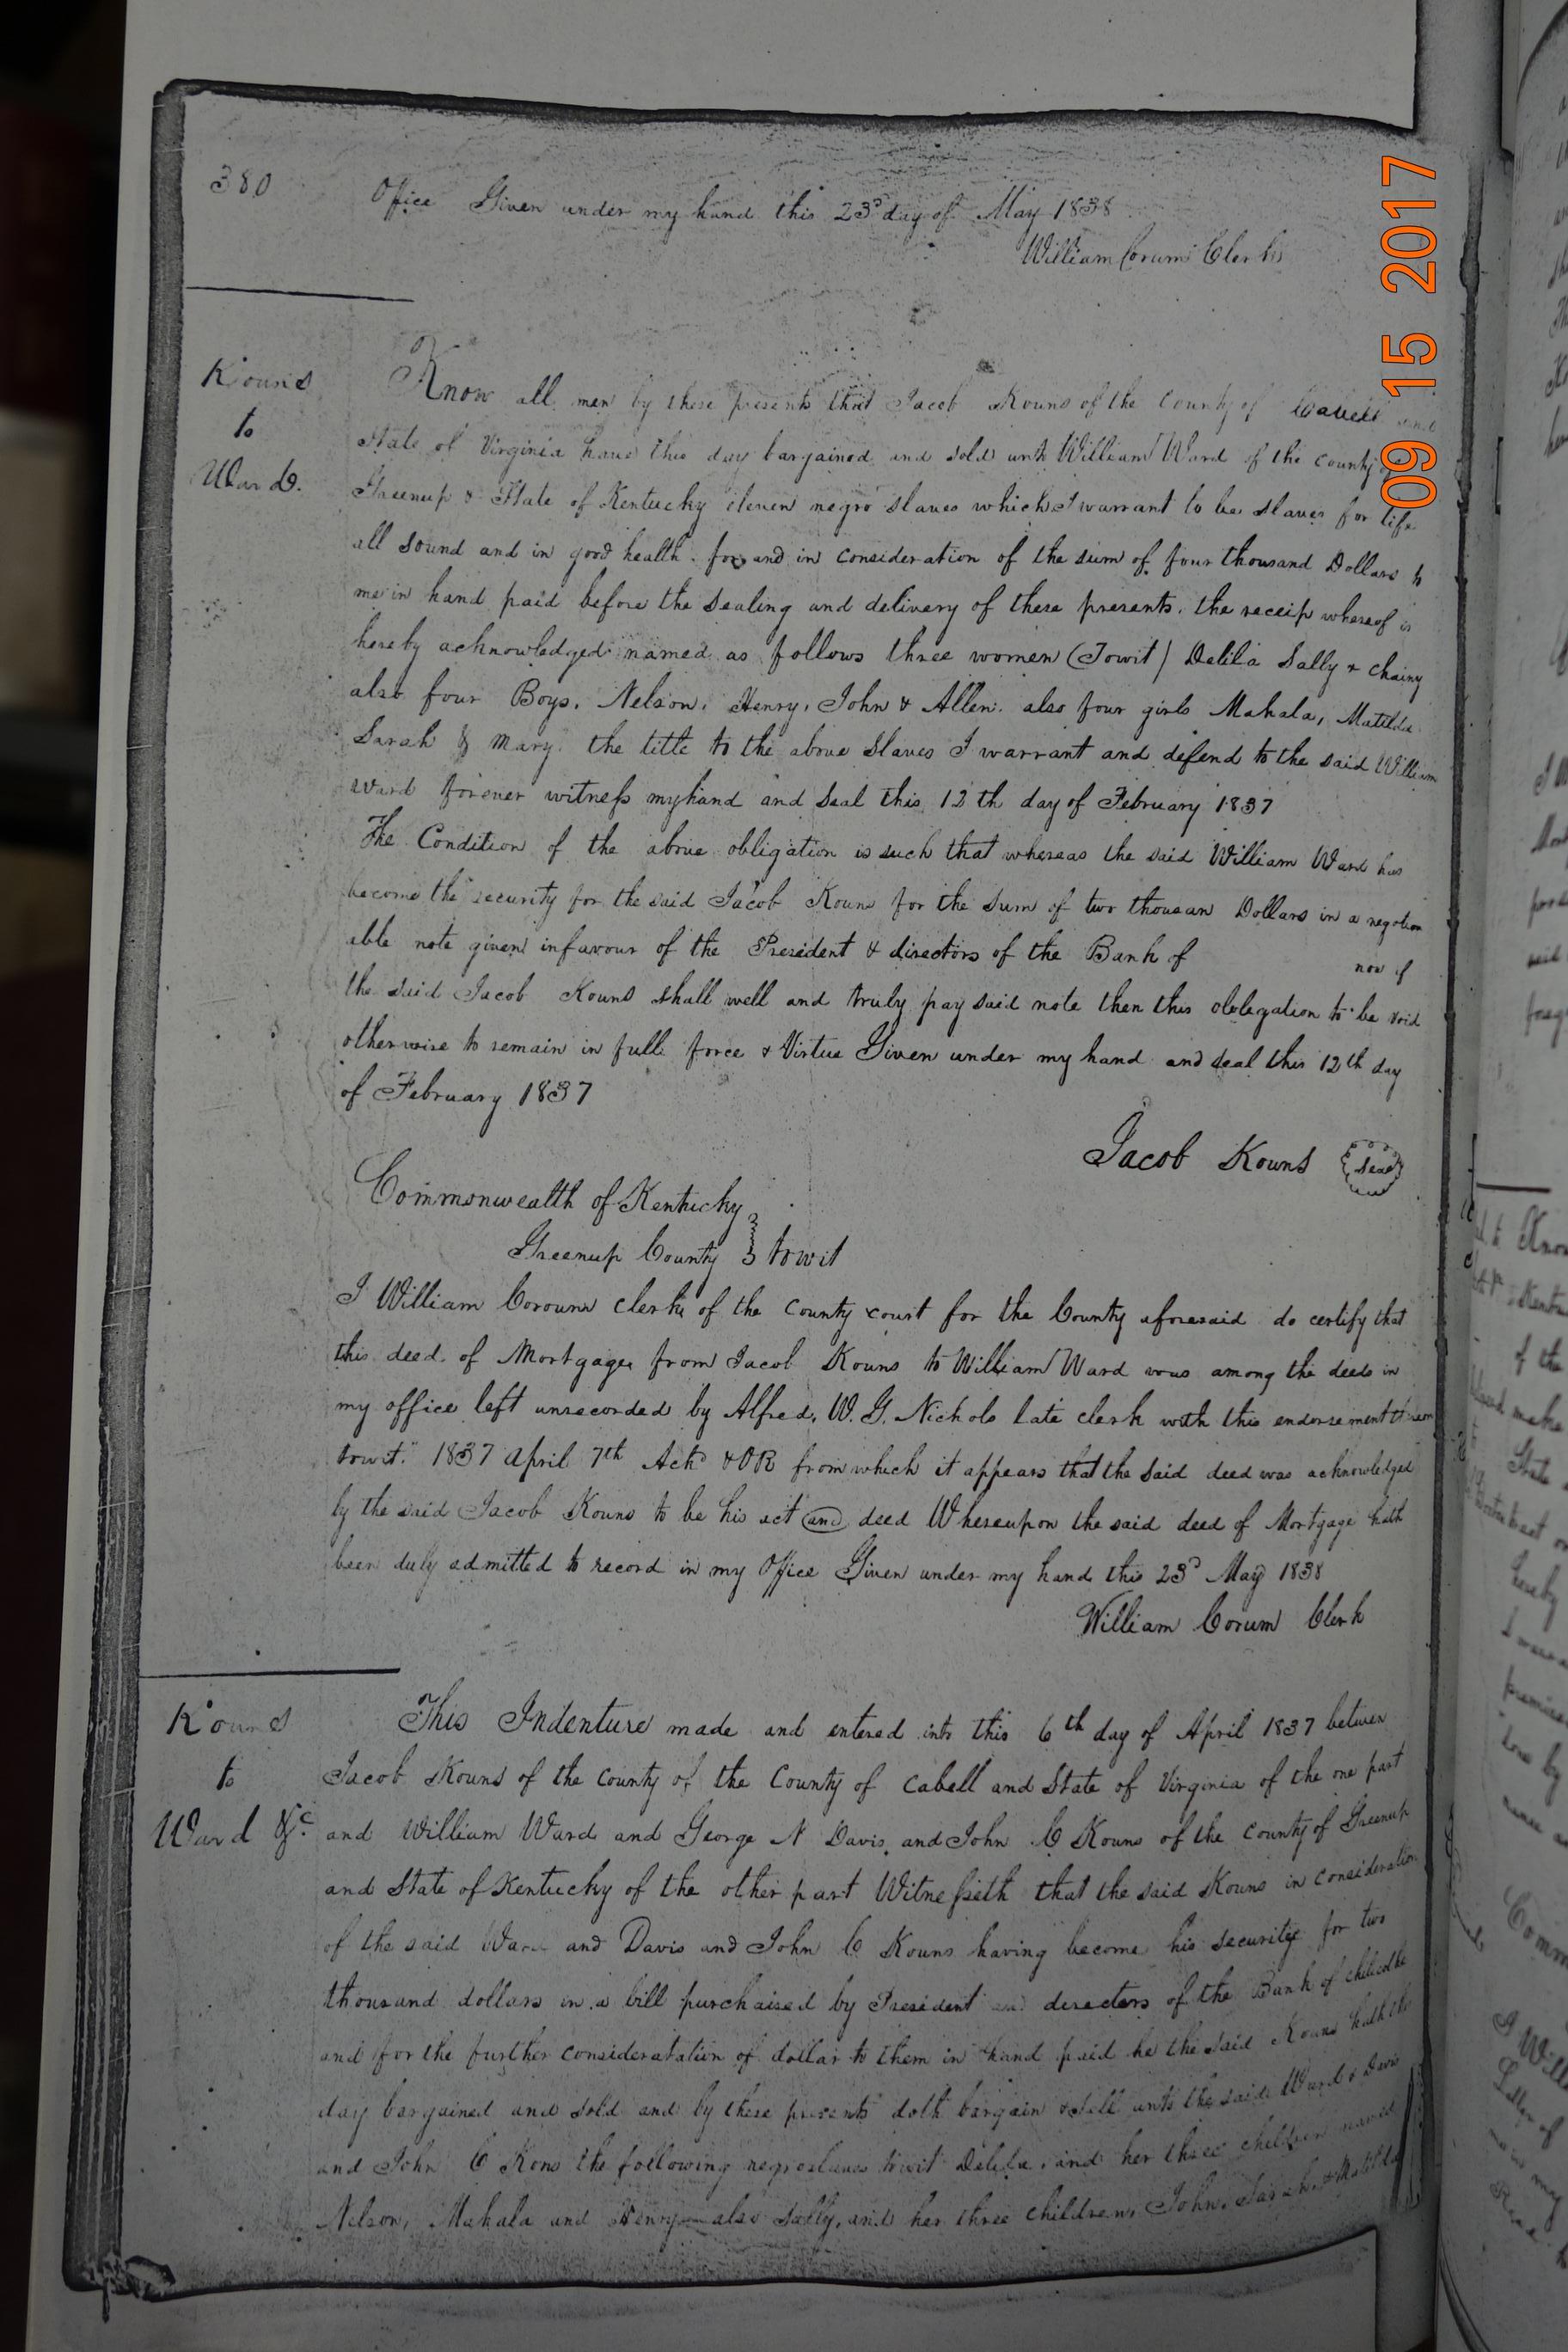 380
Office Given under my hand this 23d day of May 1838
William Corum Clerk
Kouns
to
Ward.
Know all men by these presents that Jacob Kouns of the County of Cabell and
State of Virginia have this day bargained and sold unto William Ward of the county of
Greenup & State of Kentucky eleven negro slaves which I warrant to be slaves for life
all sound and in good health. for and in consideration of the sum of four thousand Dollars to
me in hand paid before the sealing and delivery of these presents. the receip whereof is
hereby acknowledged named as follows three women (Towit) Delila Sally & Chainy
also four Boys. Nelson, Henry, John & Allen. also four girls Mahala, Matilda
Sarah & Mary. the title to the above slaves I warrant and defend to the said William
Ward forever witness my hand and seal this 12th day of February 1837
The Condition of the above obligation is such that whereas the said William Ward has
become the security for the said Jacob Kouns for the sum of two thousan Dollars in a negotion
able note given in favour of the President & directors of the Bank of now if
the said Jacob Kouns shall well and truly pay said note then this oblegation to be void
otherwise to remain in full force & Virtue Given under my hand and seal this 12th day
of February 1837
Jacob Kouns Seal
Commonwealth of Kentucky
Greenup County } towit
I William Coroum clerk of the County court for the County aforesaid do certify that
this deed of Mortgage from Jacob Kouns to William Ward was among the deeds in
my office left unrecorded by Alfred. W. G. Nichols late clerk with this endorsement thereon
towit." 1837 April 7th Ackd & OR from which it appears that the said deed was acknowledged
by the said Jacob Kouns to be his act and deed Whereupon the said deed of Mortgage hath
been duly admitted to record in my Office Given under my hand this 23d May 1838
William Corum Clerk
Kouns
to
Ward &c
This Indenture made and entered into this 6th day of April 1837 between
Jacob Kouns of the County of the County of Cabell and State of Virginia of the one part
and William Ward and George N Davis and John C Kouns of the County of Greenup
and State of Kentucky of the other part Witnesseth that the said Kouns in consideration
of the said Ward and Davis and John C Kouns having become his security for two
thousand dollars in a bill purchaised by President and directors of the Bank of Chilicothe
and for the further consideratation of dollar to them in hand paid he the said Kouns hath this
day bargained and sold and by these presents doth bargain & sell unto the said Ward & Davis
and John C Kons the following negro slaves towit Delila, and her three children named
Nelson, Mahala and Henry also Sally, and her three children, John, Sarah & Matilda
09 15 2017